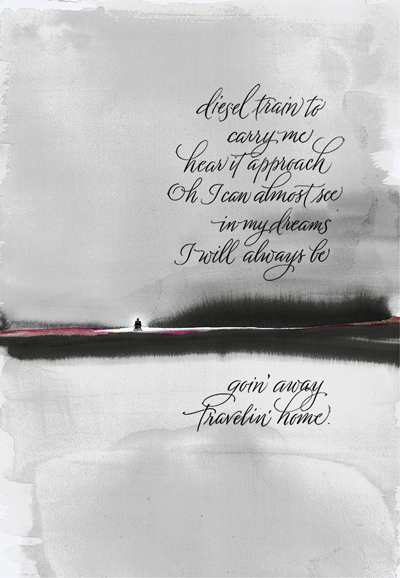 diesel train to
carry me
hear it approach
Oh I can almost see
in my dreams
I will always be
goin' away
Travelin' home.